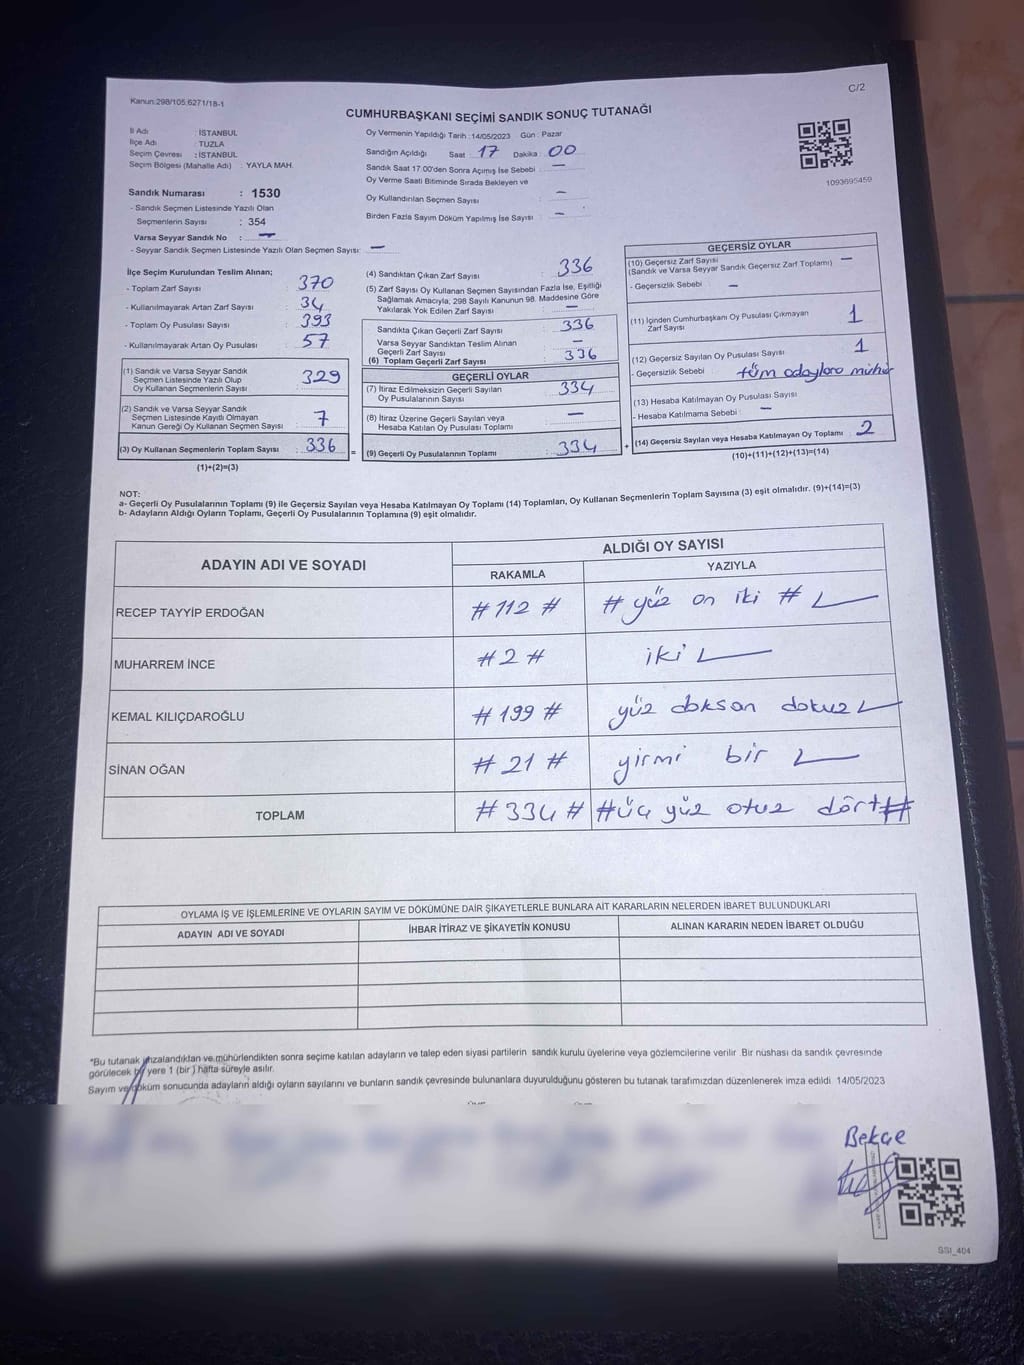 Kanun:298/105;6271/18-1
C/2
CUMHURBAŞKANI SEÇİMİ SANDIK SONUÇ TUTANAĞI
İl Adı : İSTANBUL
İlçe Adı : TUZLA
Seçim Çevresi : İSTANBUL
Seçim Bölgesi (Mahalle Adı) : YAYLA MAH.
Sandık Numarası : 1530
- Sandık Seçmen Listesinde Yazılı Olan
Seçmenlerin Sayısı : 354
Varsa Seyyar Sandık No : —
- Seyyar Sandık Seçmen Listesinde Yazılı Olan Seçmen Sayısı: —
Oy Vermenin Yapıldığı Tarih : 14/05/2023 Gün : Pazar
Sandığın Açıldığı Saat : 17 Dakika : 00
Sandık Saat 17.00'den Sonra Açımış İse Sebebi : —
Oy Verme Saati Bitiminde Sırada Bekleyen ve
Oy Kullandırılan Seçmen Sayısı : —
Birden Fazla Sayım Döküm Yapılmış İse Sayısı : —
1093695459
İlçe Seçim Kurulundan Teslim Alınan;
- Toplam Zarf Sayısı : 370
- Kullanılmayarak Artan Zarf Sayısı : 34
- Toplam Oy Pusulası Sayısı : 393
- Kullanılmayarak Artan Oy Pusulası : 57
(1) Sandık ve Varsa Seyyar Sandık
Seçmen Listesinde Yazılı Olup
Oy Kullanan Seçmenlerin Sayısı : 329
(2) Sandık ve Varsa Seyyar Sandık
Seçmen Listesinde Kayıtlı Olmayan
Kanun Gereği Oy Kullanan Seçmen Sayısı : 7
(3) Oy Kullanan Seçmenlerin Toplam Sayısı : 336
(1)+(2)=(3)
=
(4) Sandıktan Çıkan Zarf Sayısı : 336
(5) Zarf Sayısı Oy Kullanan Seçmen Sayısından Fazla İse, Eşitliği
Sağlamak Amacıyla; 298 Sayılı Kanunun 98. Maddesine Göre
Yakılarak Yok Edilen Zarf Sayısı : —
Sandıkta Çıkan Geçerli Zarf Sayısı : 336
Varsa Seyyar Sandıktan Teslim Alınan
Geçerli Zarf Sayısı : —
(6) Toplam Geçerli Zarf Sayısı : 336
GEÇERLİ OYLAR
(7) İtiraz Edilmeksizin Geçerli Sayılan
Oy Pusulalarının Sayısı : 334
(8) İtiraz Üzerine Geçerli Sayılan veya
Hesaba Katılan Oy Pusulası Toplamı : —
(9) Geçerli Oy Pusulalarının Toplamı : 334
+
GEÇERSİZ OYLAR
(10) Geçersiz Zarf Sayısı : —
(Sandık ve Varsa Seyyar Sandık Geçersiz Zarf Toplamı)
- Geçersizlik Sebebi : —
(11) İçinden Cumhurbaşkanı Oy Pusulası Çıkmayan
Zarf Sayısı : 1
(12) Geçersiz Sayılan Oy Pusulası Sayısı : 1
- Geçersizlik Sebebi : tüm adaylara mühür
(13) Hesaba Katılmayan Oy Pusulası Sayısı
- Hesaba Katılmama Sebebi : —
(14) Geçersiz Sayılan veya Hesaba Katılmayan Oy Toplamı : 2
(10)+(11)+(12)+(13)=(14)
NOT:
a- Geçerli Oy Pusulalarının Toplamı (9) ile Geçersiz Sayılan veya Hesaba Katılmayan Oy Toplamı (14) Toplamları, Oy Kullanan Seçmenlerin Toplam Sayısına (3) eşit olmalıdır. (9)+(14)=(3)
b- Adayların Aldığı Oyların Toplamı, Geçerli Oy Pusulalarının Toplamına (9) eşit olmalıdır.
ADAYIN ADI VE SOYADI
ALDIĞI OY SAYISI
RAKAMLA YAZIYLA
RECEP TAYYİP ERDOĞAN # 112 # # yüz on iki #
MUHARREM İNCE # 2 # iki
KEMAL KILIÇDAROĞLU # 199 # yüz doksan dokuz
SİNAN OĞAN # 21 # yirmi bir
TOPLAM # 334 # # üç yüz otuz dört #
OYLAMA İŞ VE İŞLEMLERİNE VE OYLARIN SAYIM VE DÖKÜMÜNE DAİR ŞİKAYETLERLE BUNLARA AİT KARARLARIN NELERDEN İBARET BULUNDUKLARI
ADAYIN ADI VE SOYADI İHBAR İTİRAZ VE ŞİKAYETİN KONUSU ALINAN KARARIN NEDEN İBARET OLDUĞU
*Bu tutanak imzalandıktan ve mühürlendikten sonra seçime katılan adayların ve talep eden siyasi partilerin sandık kurulu üyelerine veya gözlemcilerine verilir. Bir nüshası da sandık çevresinde
görülecek bir yere 1 (bir ) hafta süreyle asılır.
Sayım ve döküm sonucunda adayların aldığı oyların sayılarını ve bunların sandık çevresinde bulunanlara duyurulduğunu gösteren bu tutanak tarafımızdan düzenlenerek imza edildi. 14/05/2023
SSI_404